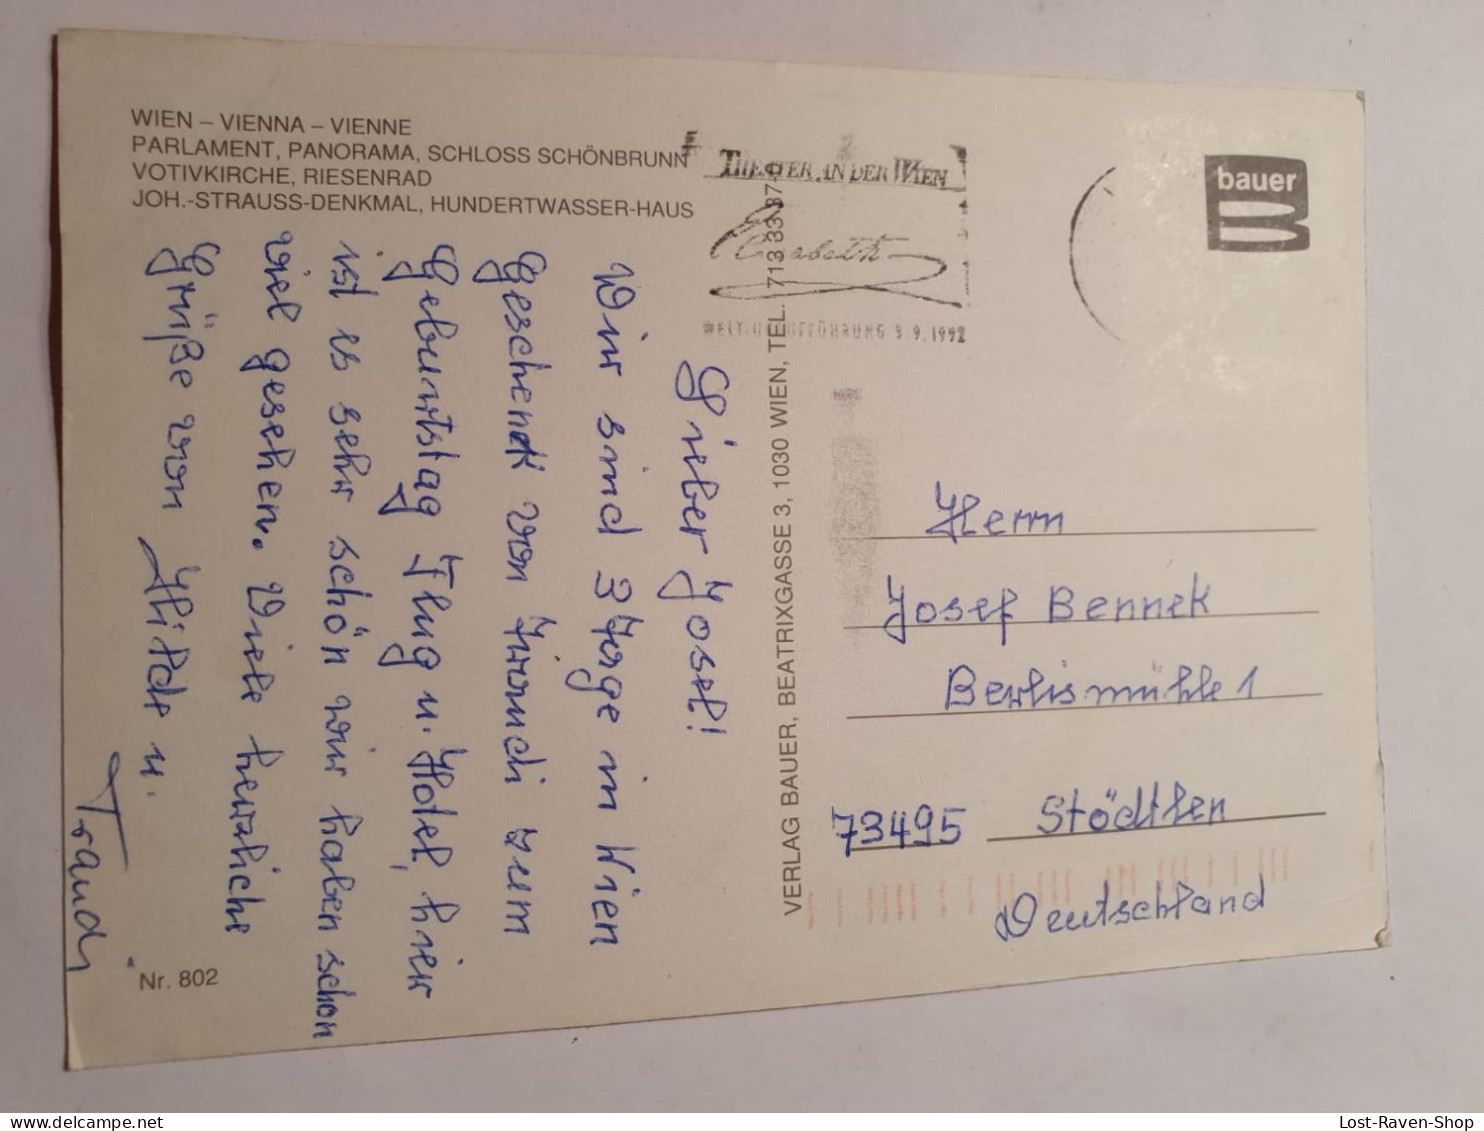 WIEN – VIENNA – VIENNE
PARLAMENT, PANORAMA, SCHLOSS SCHÖNBRUNN
VOTIVKIRCHE, RIESENRAD
JOH.-STRAUSS-DENKMAL, HUNDERTWASSER-HAUS
THEATER AN DER WIEN
Elisabeth
WELT-URAUFFÜHRUNG 3.9.1992
bauer
Lieber Josef!
Wir sind 3 Tage in Wien
Geschenk von Traudi zum
Geburtstag Flug u. Hotel, hier
ist es sehr schön wir haben schon
viel gesehen. Viele herzliche
Grüße von Hilde u.
Traudi
Nr. 802
VERLAG BAUER, BEATRIXGASSE 3, 1030 WIEN, TEL. 713 33 37-0
Herrn
Josef Bennek
Berlismühle 1
73495 Stödtlen
Deutschland
Lost-Raven-Shop